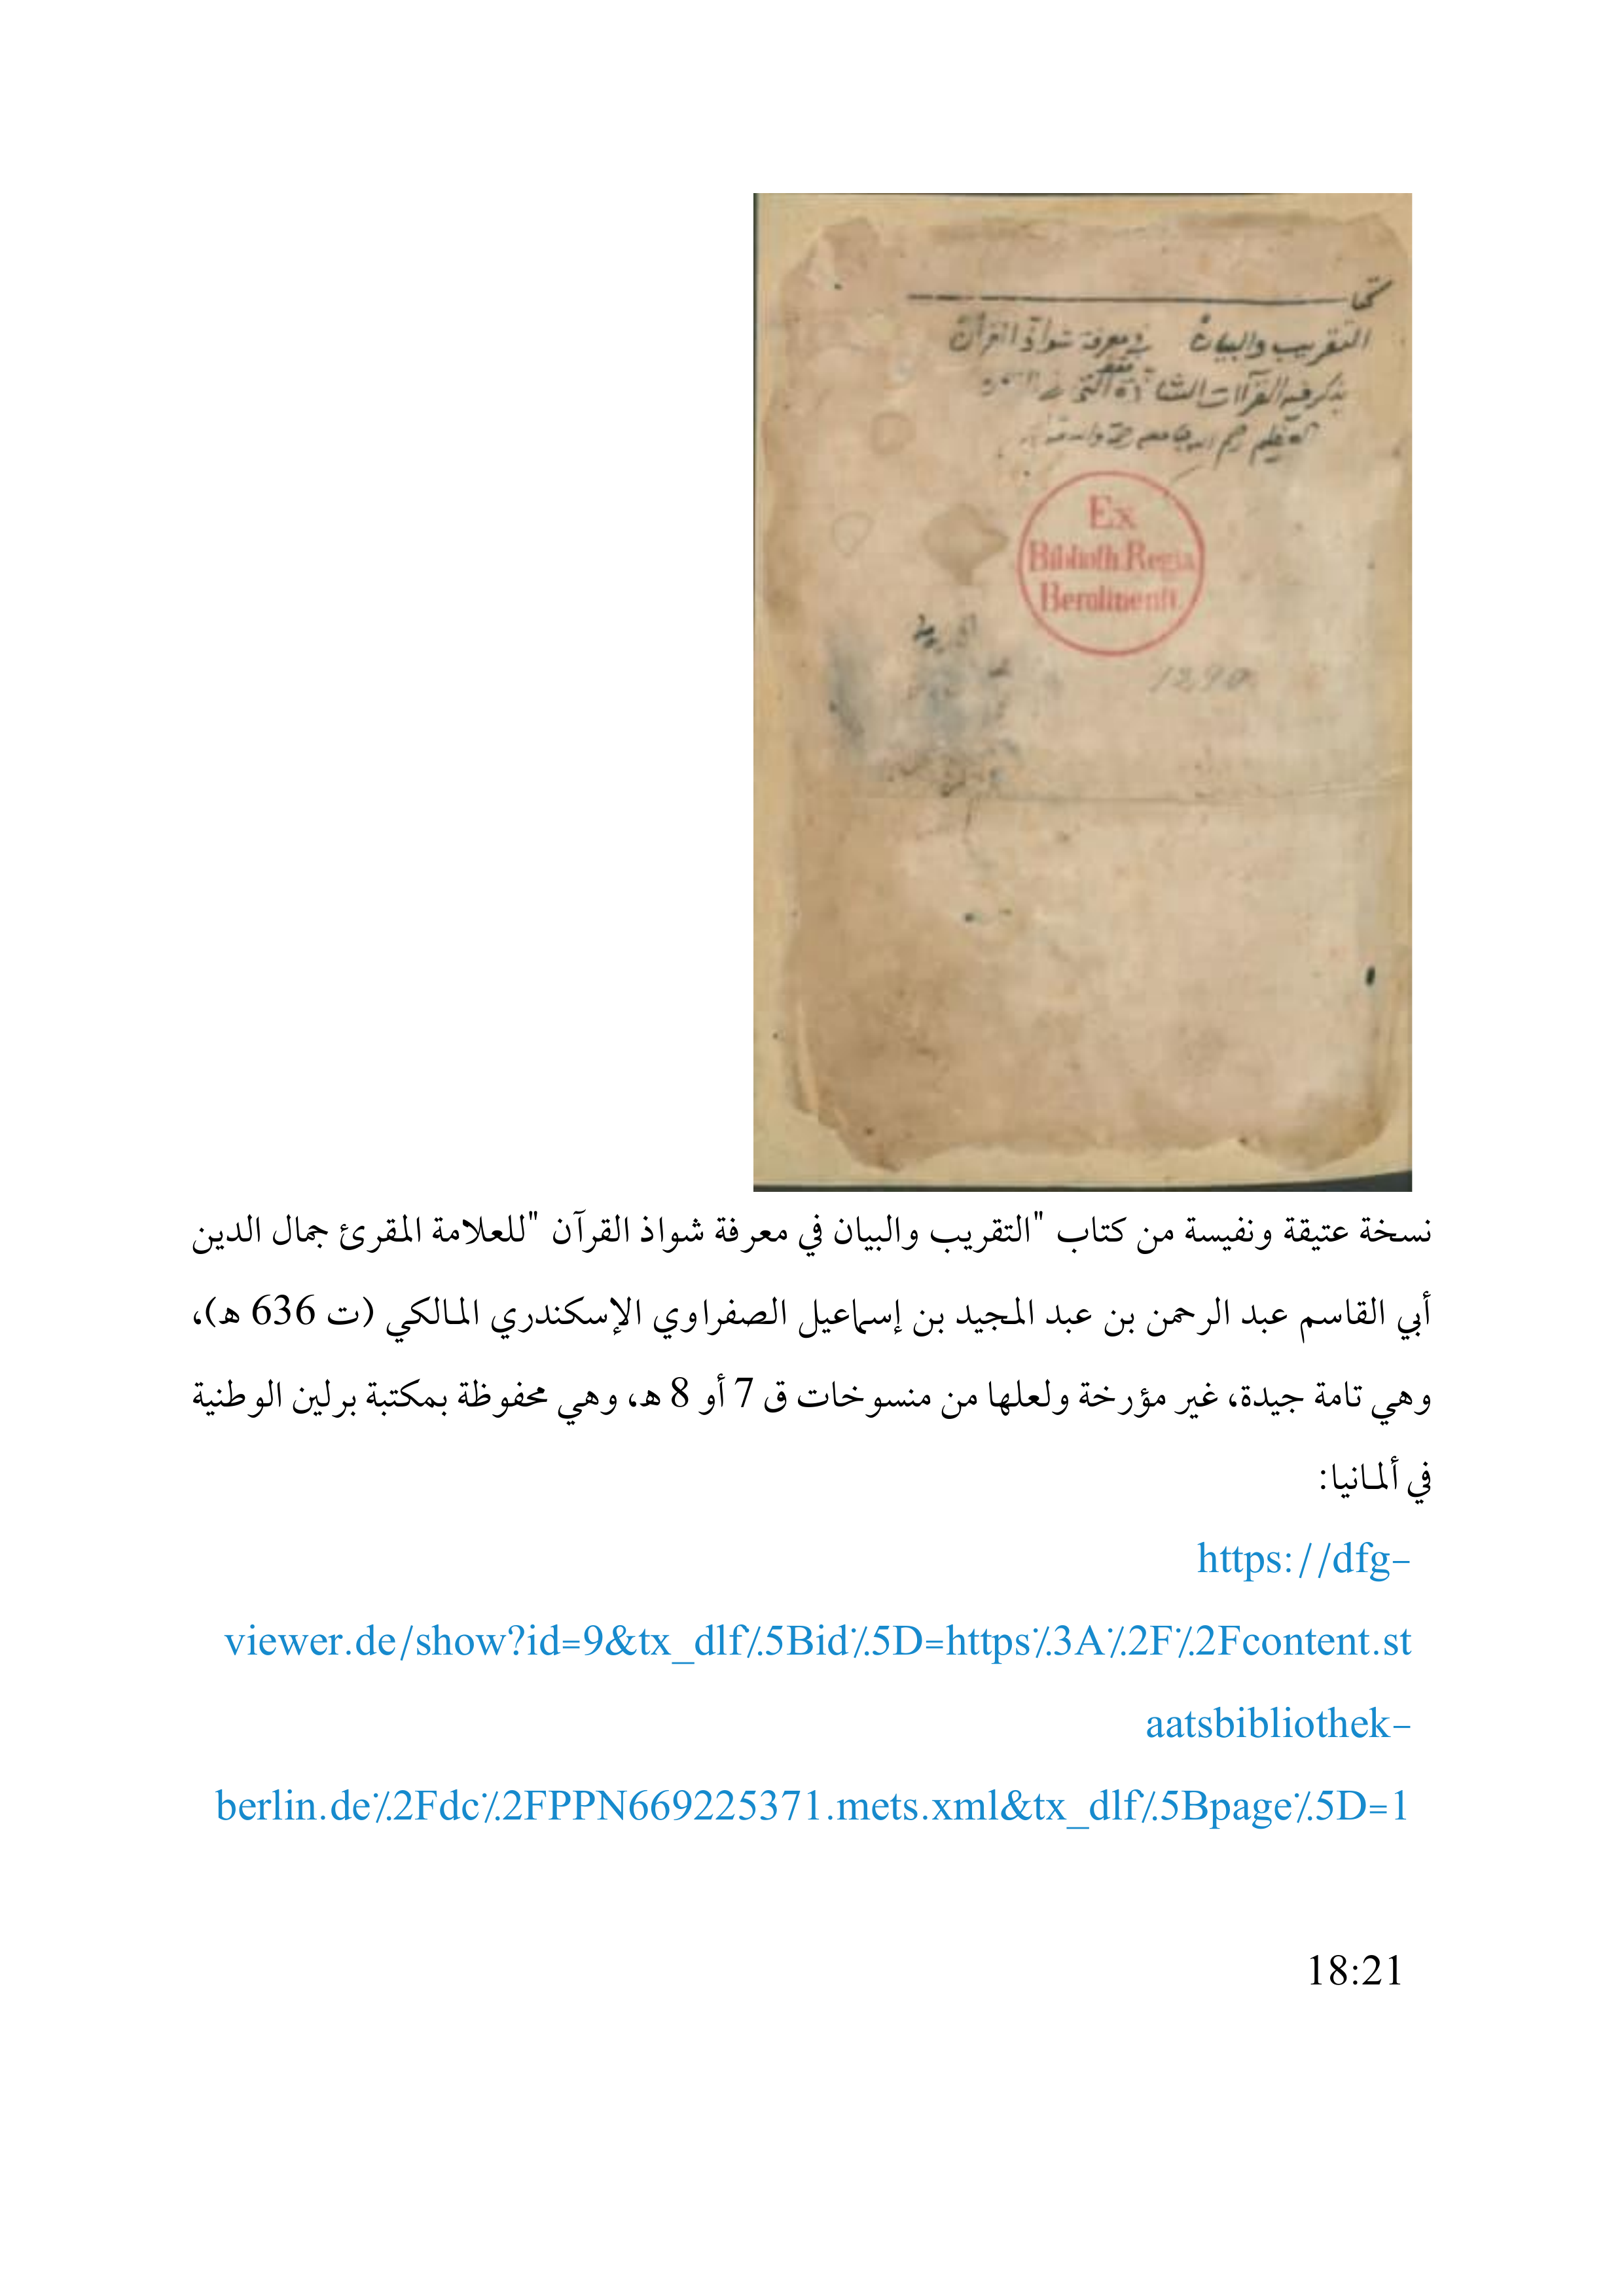 كتاب
التقريب والبيان في معرفة شواذ القرآن
يذكر فيه القرآات
العظيم رحم الله جامعه
Ex
Biblioth. Regia
Berolinenſi.
1290
نسخة عتيقة ونفيسة من كتاب "التقريب والبيان في معرفة شواذ القرآن "للعلامة المقرئ جمال الدين
أبي القاسم عبد الرحمن بن عبد المجيد بن إسماعيل الصفراوي الإسكندري المالكي (ت 636 ه)،
وهي تامة جيدة، غير مؤرخة ولعلها من منسوخات ق 7 أو 8 ه، وهي محفوظة بمكتبة برلين الوطنية
في ألمانيا:
https://dfg-
viewer.de/show?id=9&tx_dlf٪5Bid٪5D=https٪3A٪2F٪2Fcontent.st
aatsbibliothek-
berlin.de٪2Fdc٪2FPPN669225371.mets.xml&tx_dlf٪5Bpage٪5D=1
18:21